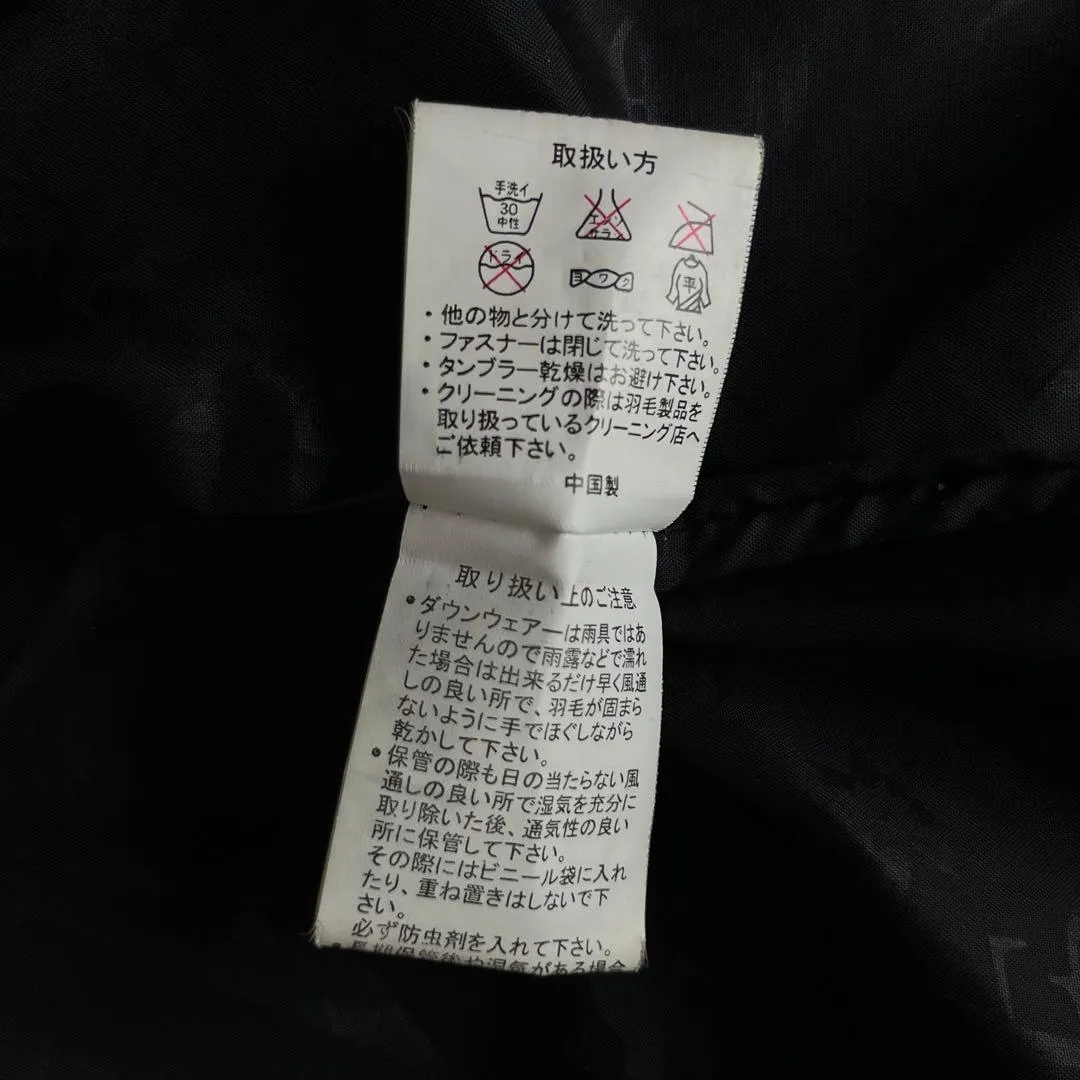 取扱い方
手洗イ
30
中性
エンソ
サラシ
ドライ
ヨワク
平
・他の物と分けて洗って下さい。
・ファスナーは閉じて洗って下さい。
・タンブラー乾燥はお避け下さい。
・クリーニングの際は羽毛製品を
取り扱っているクリーニング店へ
ご依頼下さい。
中国製
取り扱い上のご注意
●ダウンウェアーは雨具ではあ
りませんので雨露などで濡れ
た場合は出来るだけ早く風通
しの良い所で、羽毛が固まら
ないように手でほぐしながら
乾かして下さい。
●保管の際も日の当たらない風
通しの良い所で湿気を充分に
取り除いた後、通気性の良い
所に保管して下さい。
その際にはビニール袋に入れ
たり、重ね置きはしないで下
さい。
必ず防虫剤を入れて下さい。
●長期保管後や湿気がある場合